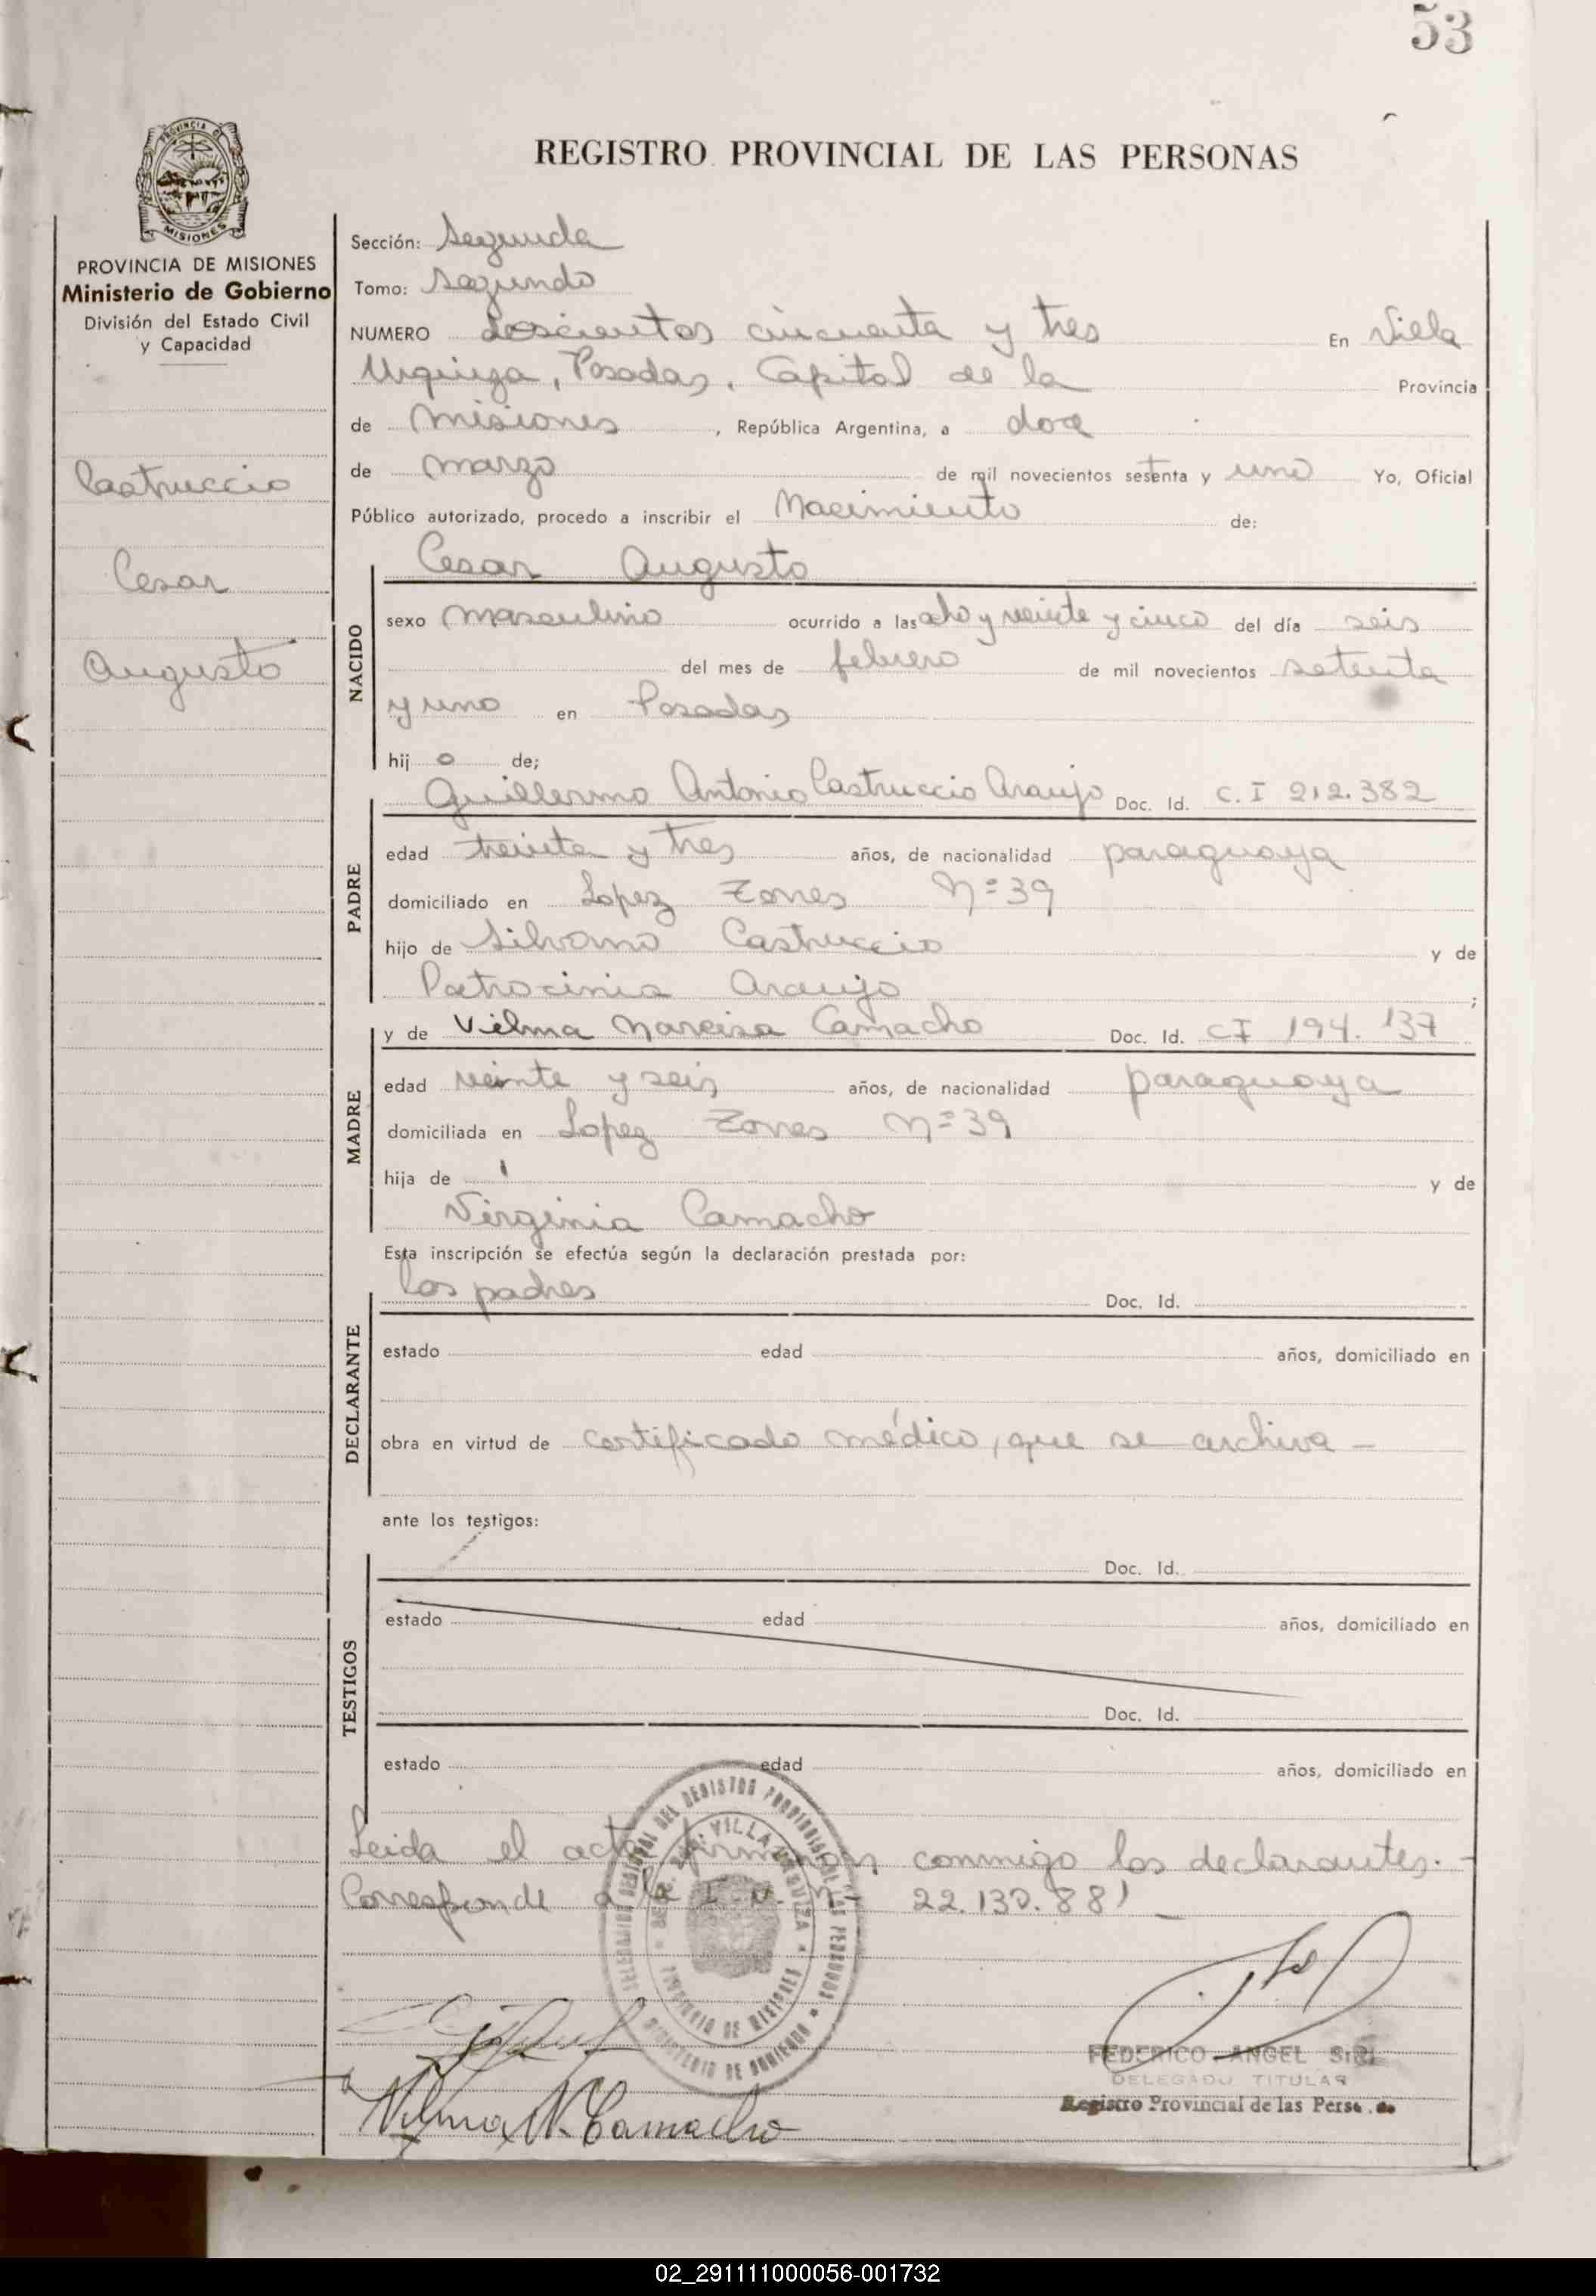 53
PROVINCIA DE
MISIONES
PROVINCIA DE MISIONES
Ministerio de Gobierno
División del Estado Civil
y Capacidad
Castruccio
Cesar
Augusto
REGISTRO PROVINCIAL DE LAS PERSONAS
Sección: Segunda
Tomo: Segundo
NUMERO doscientos cincuenta y tres En Villa
Urquiza, Posadas, Capital de la Provincia
de Misiones, República Argentina, a doce
de marzo de mil novecientos setenta y uno Yo, Oficial
Público autorizado, procedo a inscribir el Nacimiento de:
Cesar Augusto
NACIDO
sexo masculino ocurrido a las ocho y veinte y cinco del día seis
del mes de febrero de mil novecientos setenta
y uno en Posadas
hijo de;
Guillermo Antonio Castruccio Araujo Doc. Id. C. I 212.382
PADRE
edad treinta y tres años, de nacionalidad paraguaya
domiciliado en Lopez Torres Nº 39
hijo de Silvano Castruccio y de
Patrocinia Araujo ;
y de Vilma Narcisa Camacho Doc. Id. CI 194.137
MADRE
edad veinte y seis años, de nacionalidad paraguaya
domiciliada en Lopez Torres Nº 39
hija de y de
Virginia Camacho
Esta inscripción se efectúa según la declaración prestada por:
los padres Doc. Id.
DECLARANTE
estado edad años, domiciliado en
obra en virtud de certificado médico, que se archiva -
ante los testigos:
Doc. Id.
TESTIGOS
estado edad años, domiciliado en
Doc. Id.
estado edad años, domiciliado en
Leida el acta firman conmigo los declarantes. -
Corresponde a la 22.130.881 -
VILLA URQUIZA
Vilma N. Camacho
FEDERICO ANGEL
DELEGADO TITULAR
Registro Provincial de las
02_291111000056-001732